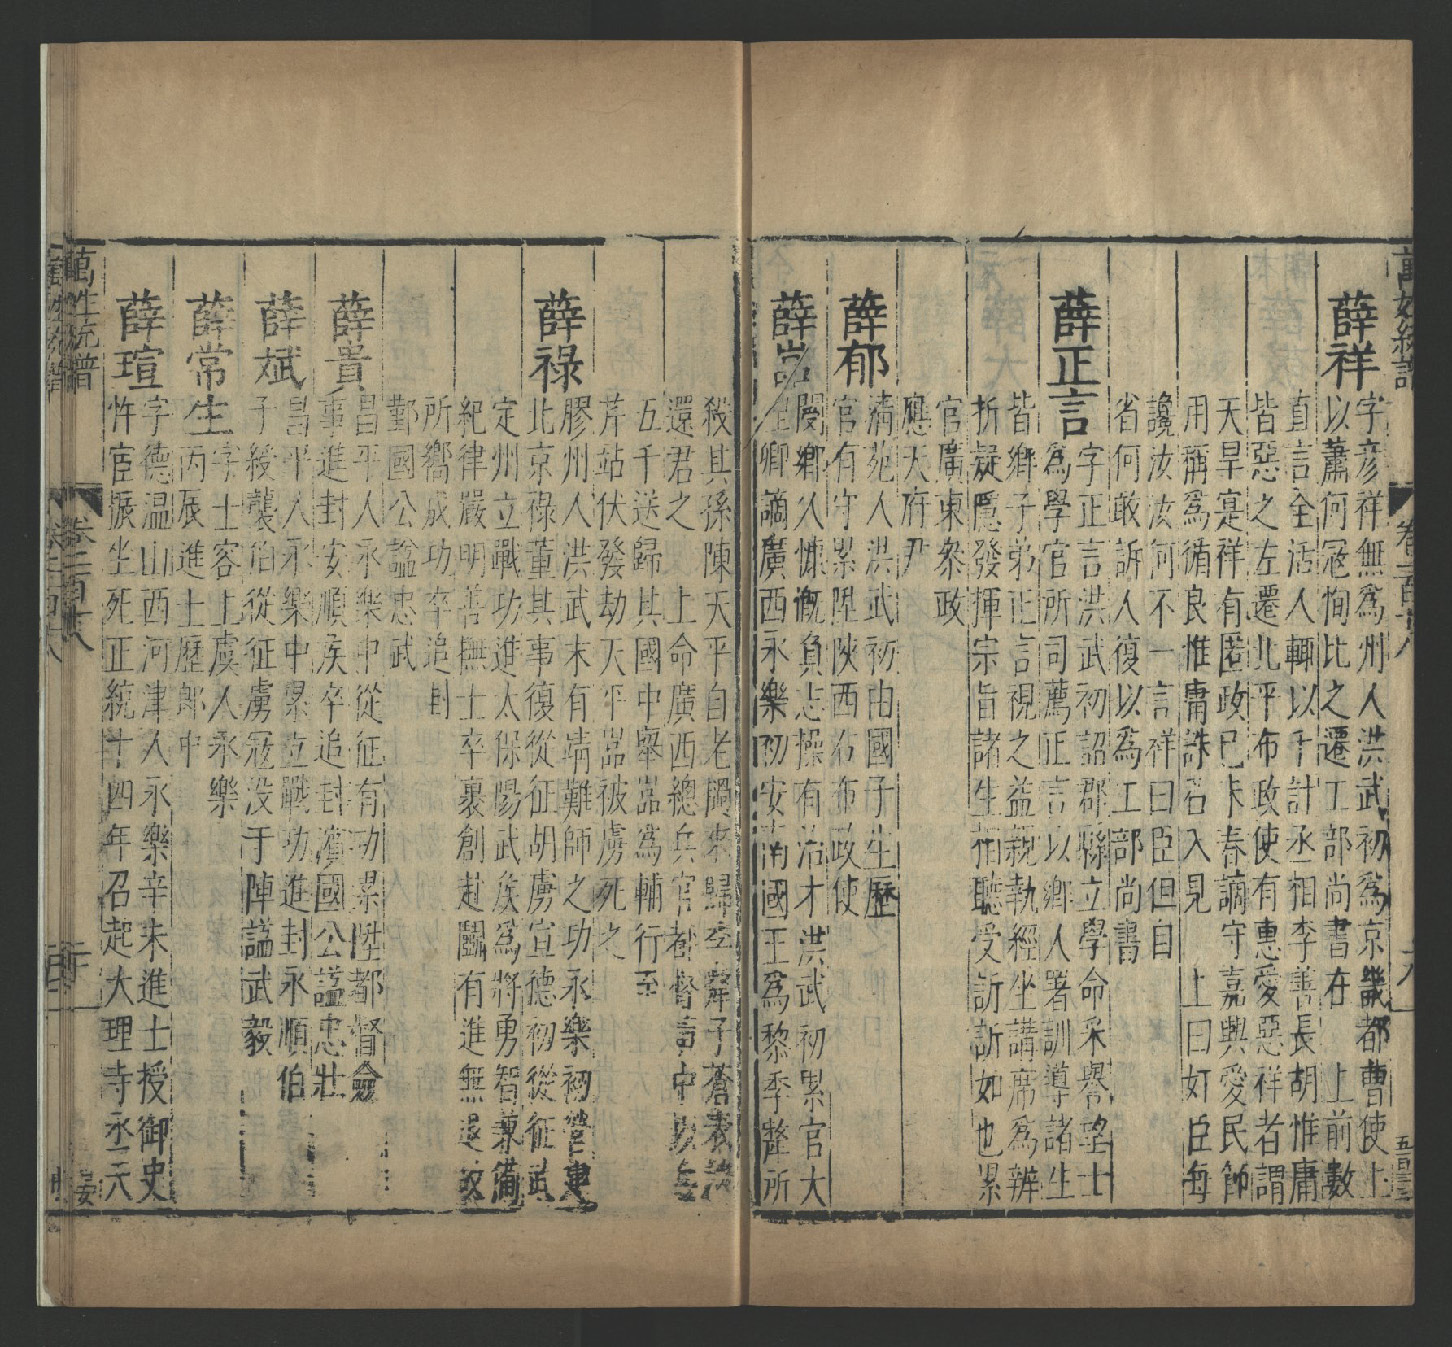 薛祥
字彦祥無爲州人洪武初爲京畿都曹使上
以蕭何冦恂比之遷工部尚書在　上前數
直言全活人輒以千計丞相李善長胡惟庸
皆惡之左遷北平布政使有惠愛惡祥者謂
天旱寔祥有匿政已未春謫守嘉興愛民節
用稱爲循良惟庸誅召入見　上曰奸臣每
讒汝汝何不一言祥曰臣但自
省何敢訴人復以爲工部尚書
薛正言
字正言洪武初詔郡縣立學命采譽望士
爲學官所司薦正言以鄉人署訓導諸生
皆鄉子弟正言視之益親執經坐講席爲辨
析疑隱發揮宗旨諸生相聽受訢訢如也累
官廣東叅政
應天府尹
薛郁
清苑人洪武初由國子生歷
官有守累陞陝西右布政使
薛嵓
閿鄉人慷慨負志操有治才洪武初累官大
卿謫廣西永樂初安南國王爲黎季犛所
殺其孫陳天平自老撾來歸季犛子蒼表請
還君之　上命廣西總兵官都督黄中以兵
五千送歸其國中舉嵓爲輔行至
芹站伏發劫天平嵓被虜死之
薛祿
膠州人洪武末有靖難師之功永樂初營建
北京祿董其事復從征胡虜宣德初從征武
定州立戰功進太保陽武侯爲將勇智兼備
紀律嚴明善撫士卒裹創赴鬭有進無退故
所嚮成功卒追封
鄞國公謚忠武
薛貴
昌平人永樂中從征有功累陞都督僉
事進封安順侯卒追封濱國公謚忠壯
薛斌
昌平人永樂中累立戰功進封永順伯
子綬襲伯從征虜冦没于陣謚武毅
薛常生
字士容上虞人永樂
丙辰進士歷郎中
薛瑄
字德温山西河津人永樂辛未進士授御史
忤宦振坐死正統十四年召起大理寺丞天
萬姓統譜
卷一百十八